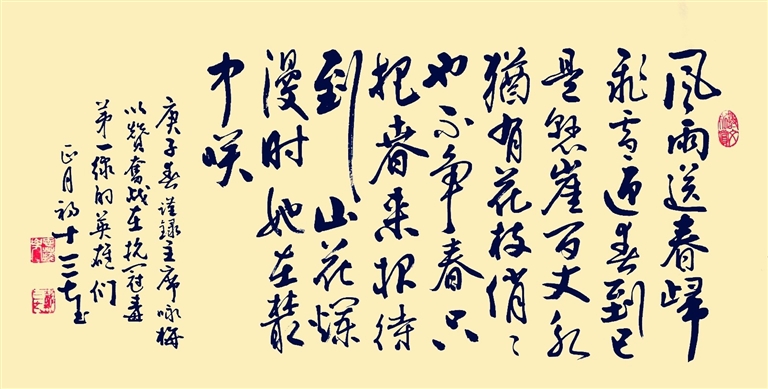 風雨送春歸
飛雪迎春到已
是懸崖百丈冰
猶有花枝俏〻
也不争春只
把春来报待
到山花爛
漫时她在叢
中咲
庚子春谨録主席咏梅
以赞奮战在抗冠毒
第一線的英雄们
正月初十